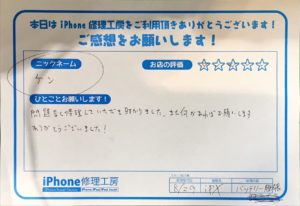 本日は iPhone 修理工房をご利用頂きありがとうございます!
ご感想をお願いします!
ニックネーム
お店の評価
ケン
ひとことお願いします!
問題なく修理していただき助かりました。また何かあればお願いします
ありがとうございました!
iPhone修理工房
8/29
iPX
バッテリー交換